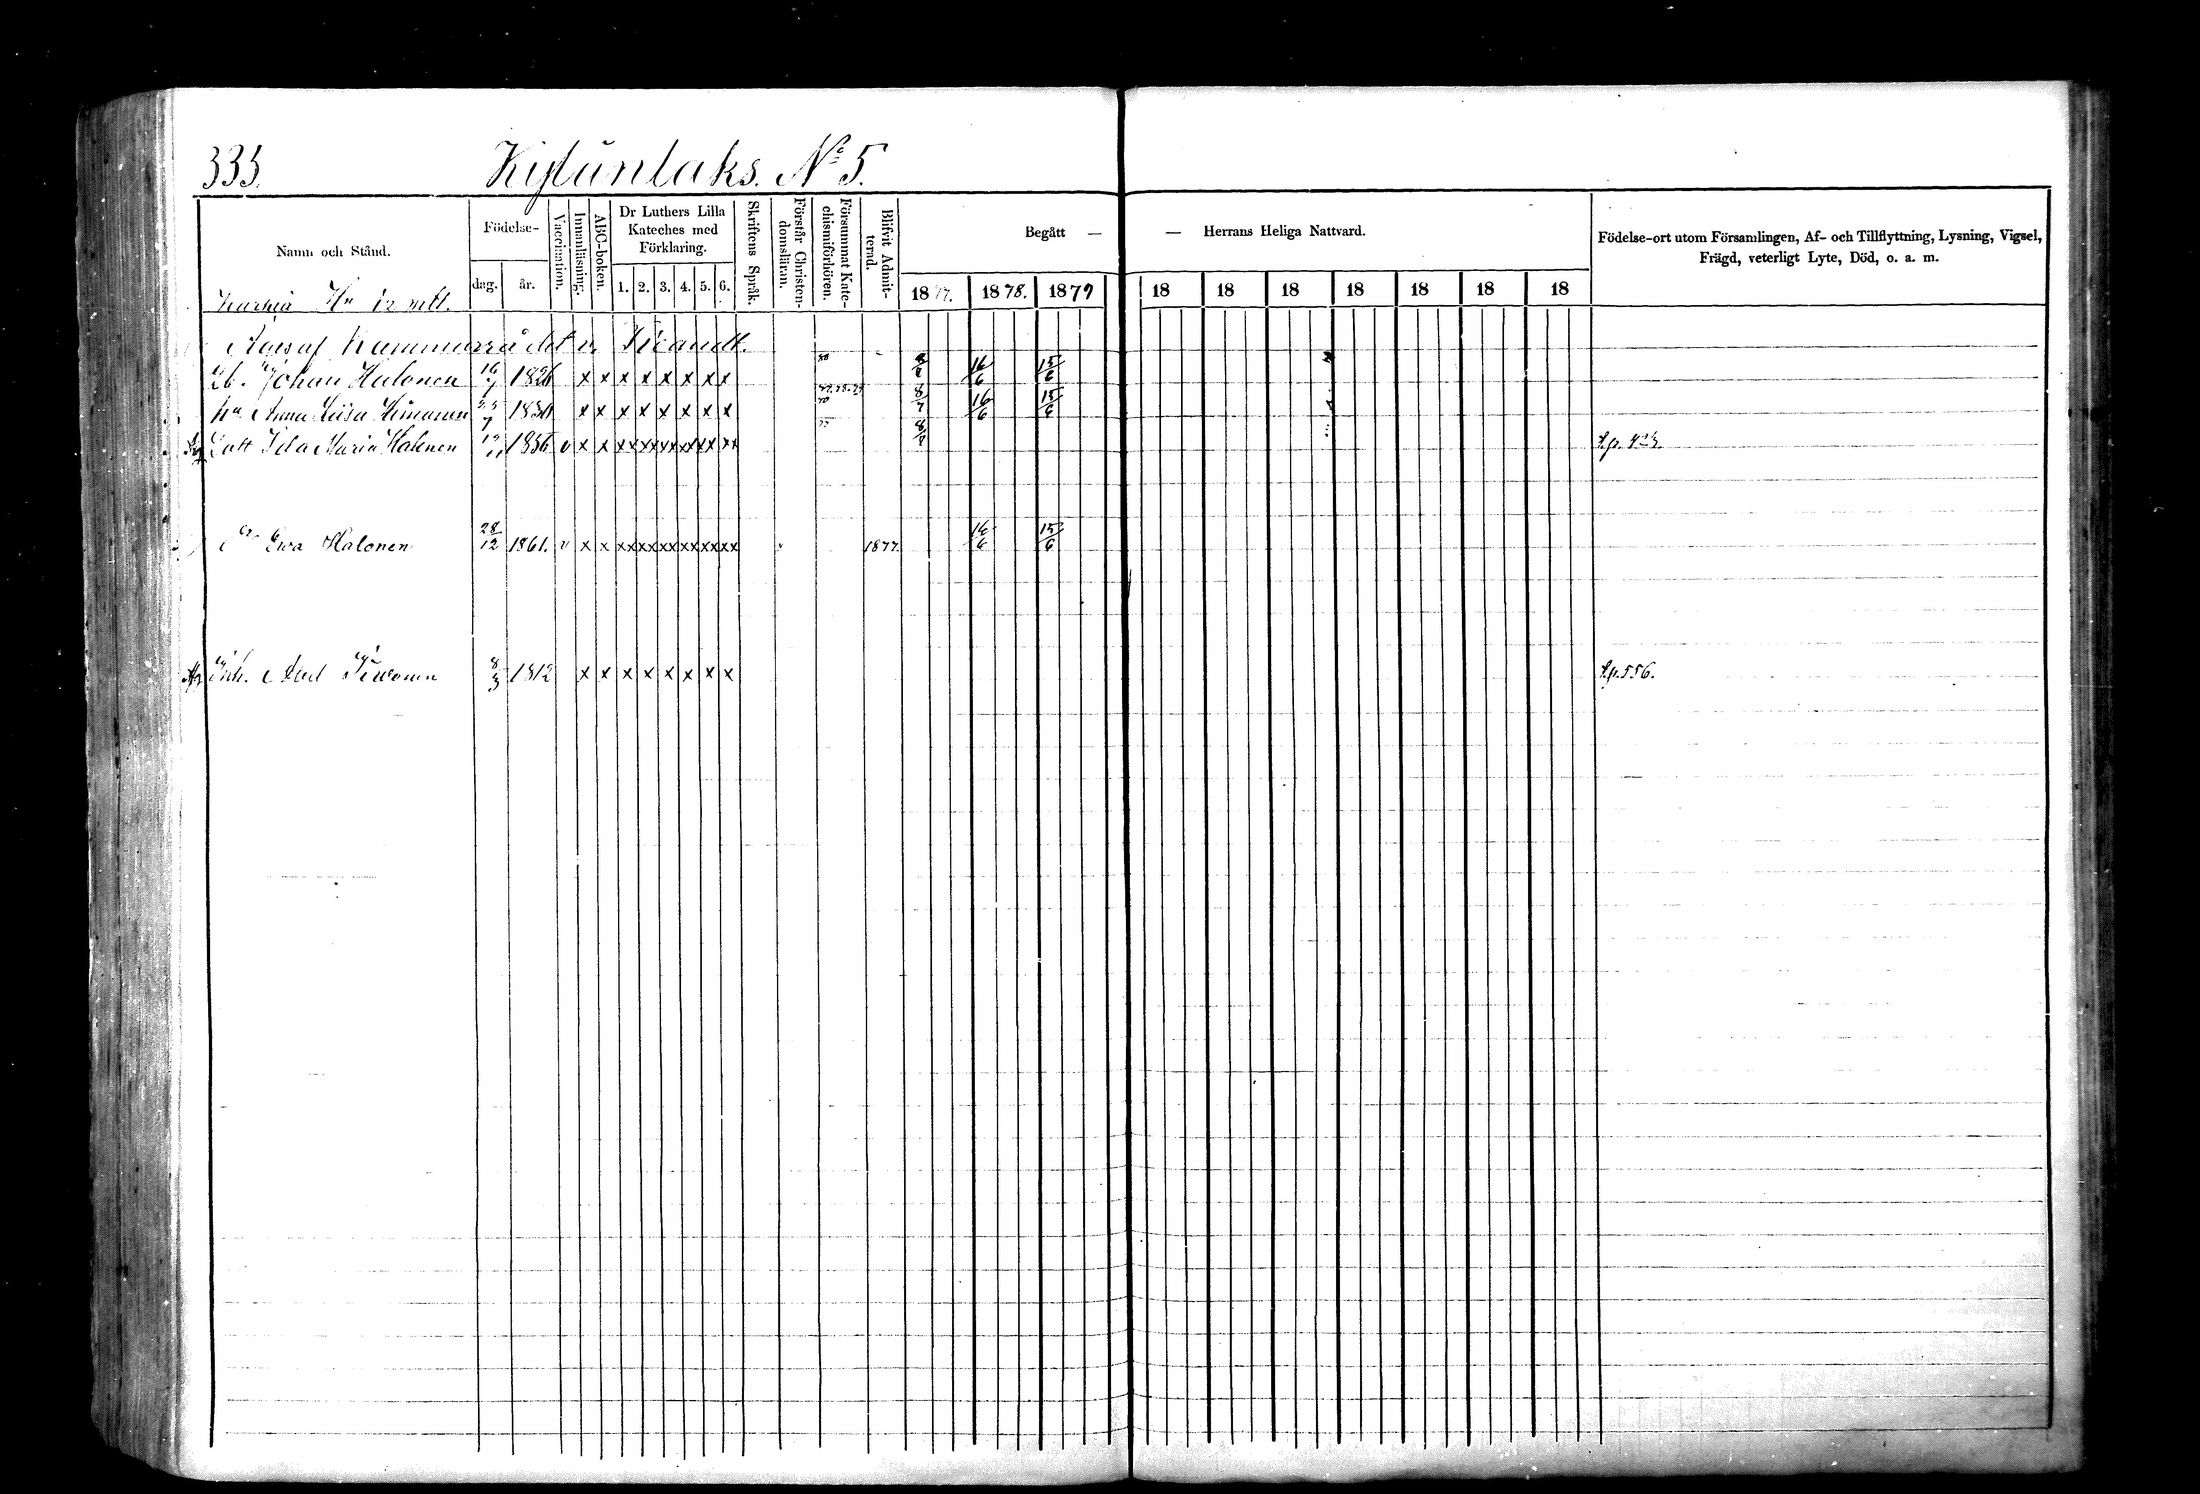 333.
Kylänlaks. No 5.
Namn och Stånd.
Födelse-
dag.
år.
Vaccination.
Innanläsning.
ABC-boken.
Dr Luthers Lilla
Kateches med
Förklaring.
1. 2. 3. 4. 5. 6.
Skriftens Språk.
Förstår Christen-
domsläran.
Försummat Kate-
chismiförhören.
Blifvit Admit-
terad.
Begått —
— Herrans Heliga Nattvard.
1877. 1878. 1879 18 18 18 18 18 18 18
Födelse-ort utom Församlingen, Af- och Tillflyttning, Lysning, Vigsel,
Frägd, veterligt Lyte, Död, o. a. m.
Äges af Kammarrådet
Johan Halonen 16/7 1826 x x x x x x x x 16/6 15/6
Anna Liisa x x x x x x x x 8/7 16/6 15/6
Dott Ida Maria Halonen 1856 v x x xx xx xx xx xx xx 8/7
Ewa Halonen 28/12 1861. v x x xx xx xx xx xx xx v 1877. 16/6 15/6
Inh. Abel 8/3 1812 x x x x x x x x S.p. 556.